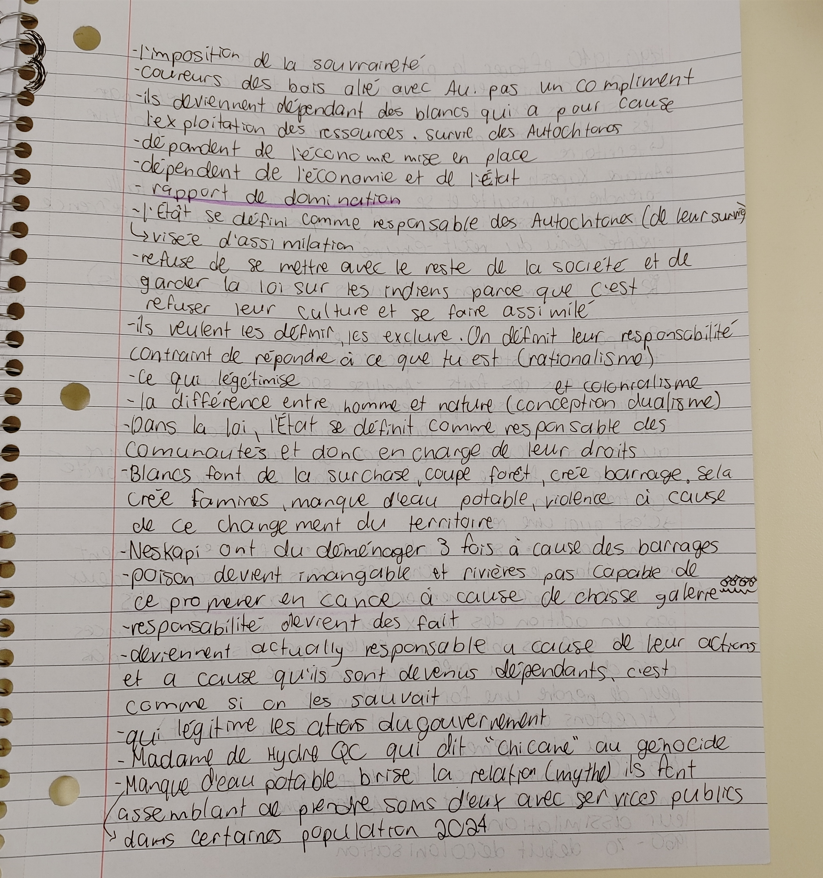 -l'imposition de la souvraineté
-coureurs des bois alié avec Au. pas un compliment
-ils deviennent dépendant des blancs qui a pour cause
l'exploitation des ressources. survie des Autochtones
-dépandent de l'économe mise en place
-dépendent de l'économie et de l'État
- rapport de domination
-l'État se défini comme responsable des Autochtones (de leur survie)
↳visée d'assimilation
-refuse de se mettre avec le reste de la société et de
garder la loi sur les indiens parce que c'est
refuser leur culture et se faire assimilé
-ils veulent les définir, les exclure. On définit leur responsabilité
contraint de répondre à ce que tu est (rationalisme)
-Ce qui légétimise et colonialisme
- la différence entre homme et nature (conception dualisme)
-Dans la loi, l'État se définit comme responsable des
Comunautés et donc en charge de leur droits
-Blancs font de la surchase, coupe forêt, crée barrage, sela
crée famines, manque d'eau potable, violence à cause
de ce changement du territoire
-Neskapi ont du déménager 3 fois à cause des barrages
-poison devient imangable et rivières pas capable de
ce promener en canoe à cause de chasse galerie
-responsabilité devient des fait
-deviennent actually responsable a cause de leur actions
et a cause qu'ils sont devenus dépendants, c'est
comme si on les sauvait
-qui légitime les ations du gouvernement
- Madame de Hydro QC qui dit "chicane" au génocide
-Manque d'eau potable brise la relation (mythe) ils font
assemblant de prendre soins d'eux avec services publics
→ dans certaines population 2024